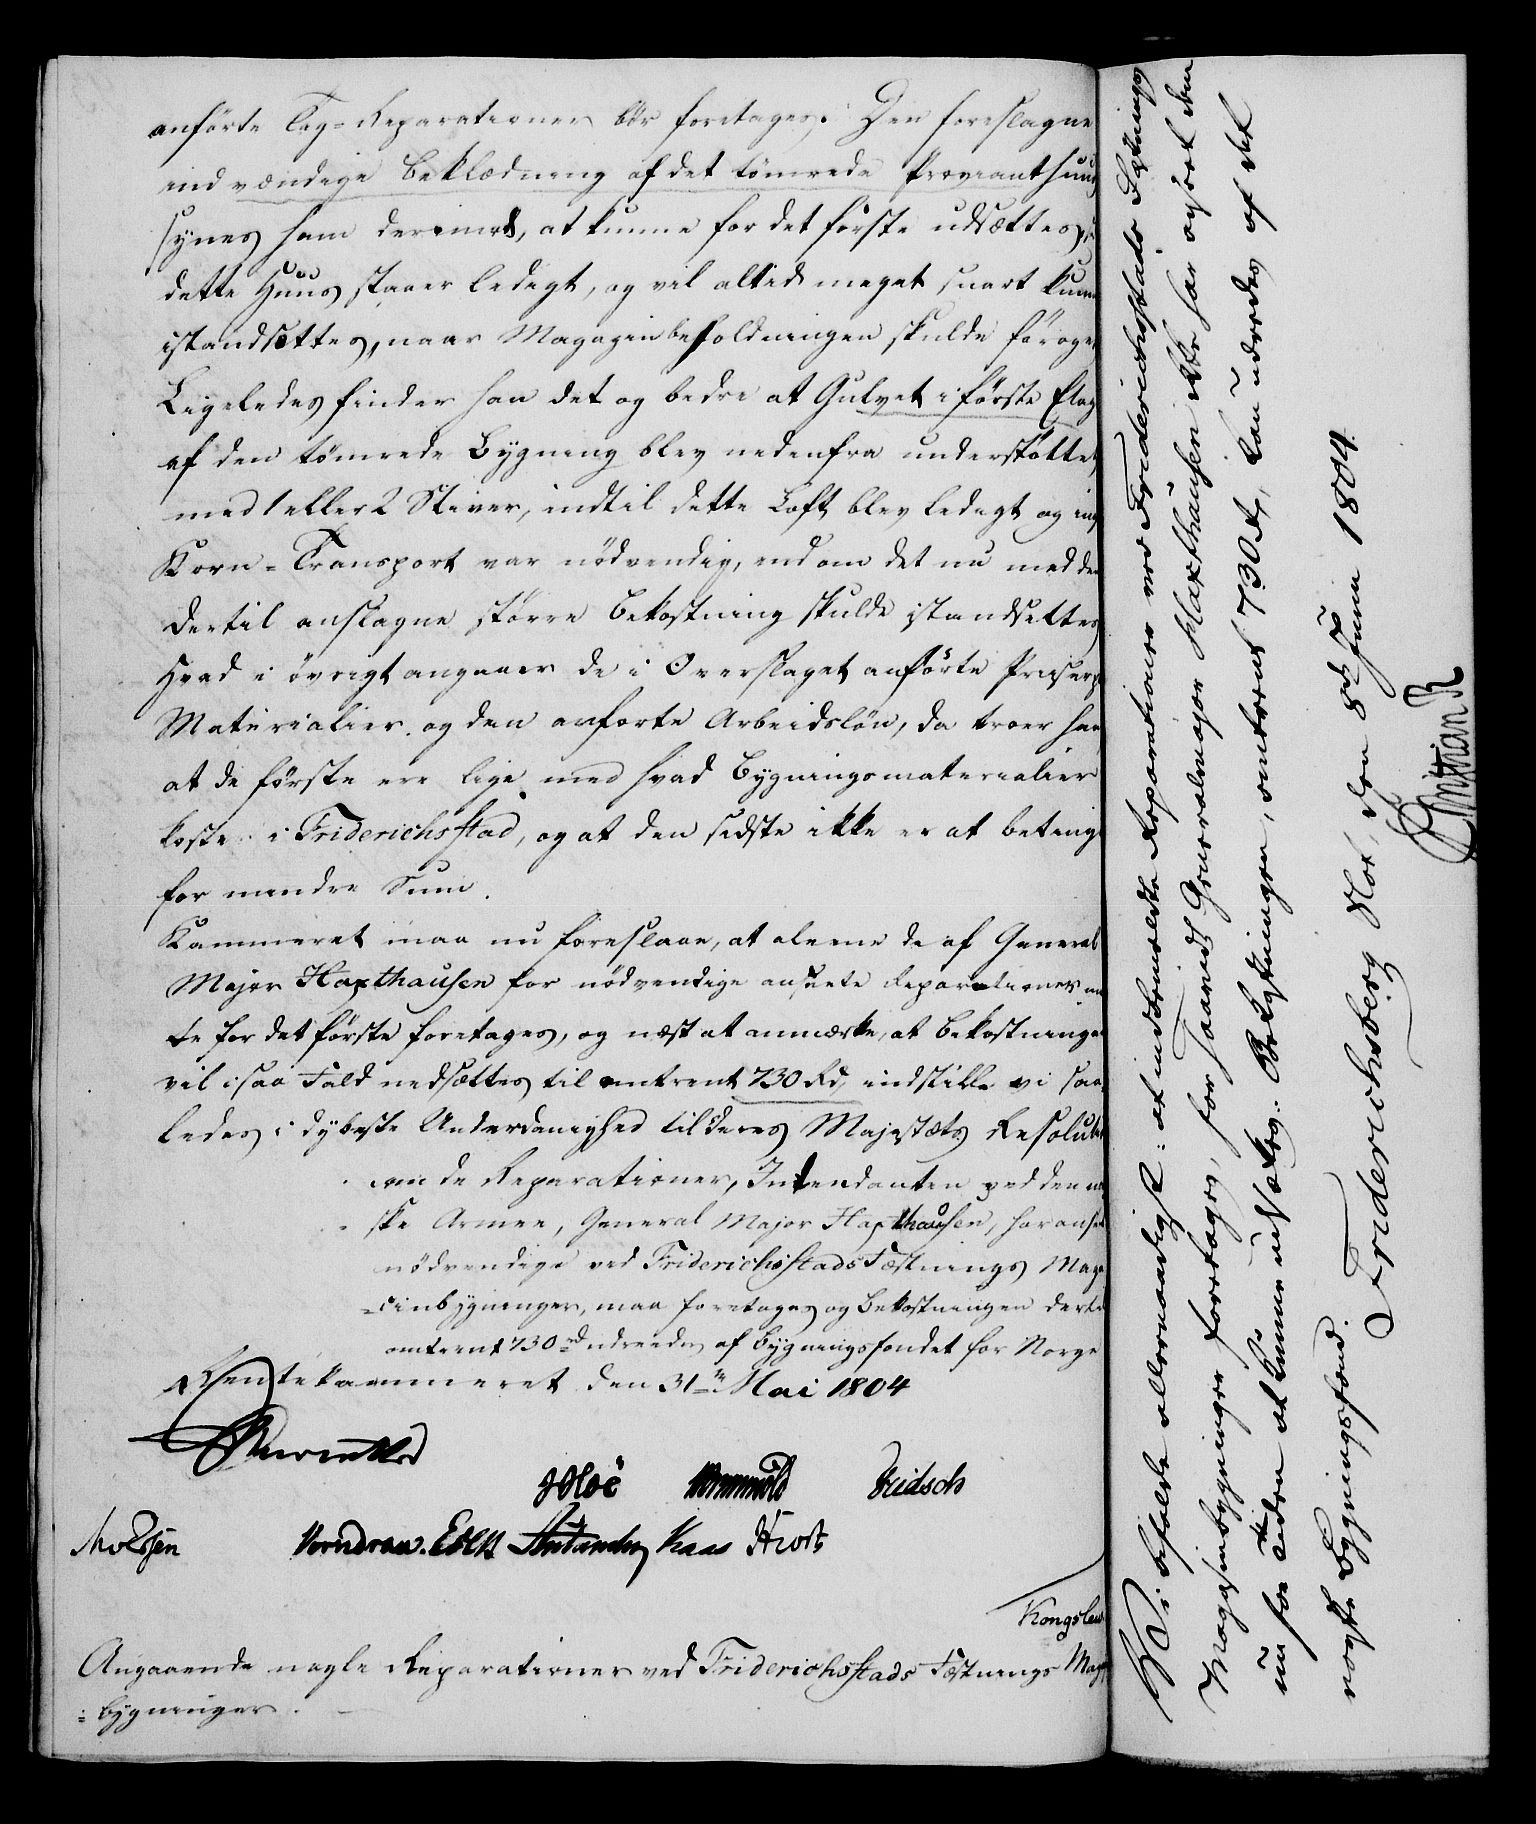 anförte Tag-Reparationer bör foretages. Den foreslagne
indvændige Beklædning af det tömrede Provianthuus
synes ham derimod, at kunne for det förste udsættes,
dette Huus staaer ledigt, og vil altid meget snart kunne
istandsættes, naar Magazinbeholdningen skulde foröges
Ligeledes finder han det og bedre at Gulvet i förste Etag
af den tömrede Bygning blev nedenfra understöttet
med 1 eller 2 Stiver, indtil dette Loft blev ledigt og ing
Korn-Transport var nödvendig, end om det nu med den
dertil anslagne större Bekostning skulde istandsættes
Hvad i övrigt angaaer de i Overslaget anförte Priser p
Materialier og den anforte Arbeidslön, da troer han
at de förste ere lige med hvad Bygningsmaterialier
koste i Friderichsstad, og at den sidste ikke er at beting
for mindre Sum.
Kammeret maa nu foreslaae, at alene de af General
Major Haxthausen for nödvendige ansete Reparationer m
te for det förste foretages, og næst at anmærke, at Bekostningen
vil i saa Fald nedsættes til omtrent 730 Rd, indstille vi saa
ledes i dybeste Underdanighed til Deres Majestæts Resolut
om de Reparationer, Intendanten ved den no
ske Armee, General Major Haxthausen, har anset
nödvendige ved Friderichsstads Fæstnings Maga
-zinbygninger, maa foretages og Bekostningen dertil
omtrent 730 rd udredes af Bygningsfondet for Norge
Rentekammeret den 31te Mai 1804
Reventlow
Hoë Fridsch
Knudsen Wormdrau. Kaas Hiort
Kongslew
Angaaende nogle Reparationer ved Friderichsstads Fæstnings Mag
= bygninger.
Vi bifalde allernaadigst: at indbemeldte Reparationer ved Friderichsstads Fæstnings
Magasinbygninger foretages, for saavidt Generalmajor Haxthausen ikke har anseet dem
at kunne udsættes. Bekostningen, omtrent 730 Rd, kan udredes af det
norske Bygningsfond.
Friderichsberg Slot, den 8de Juni 1804
Christian R